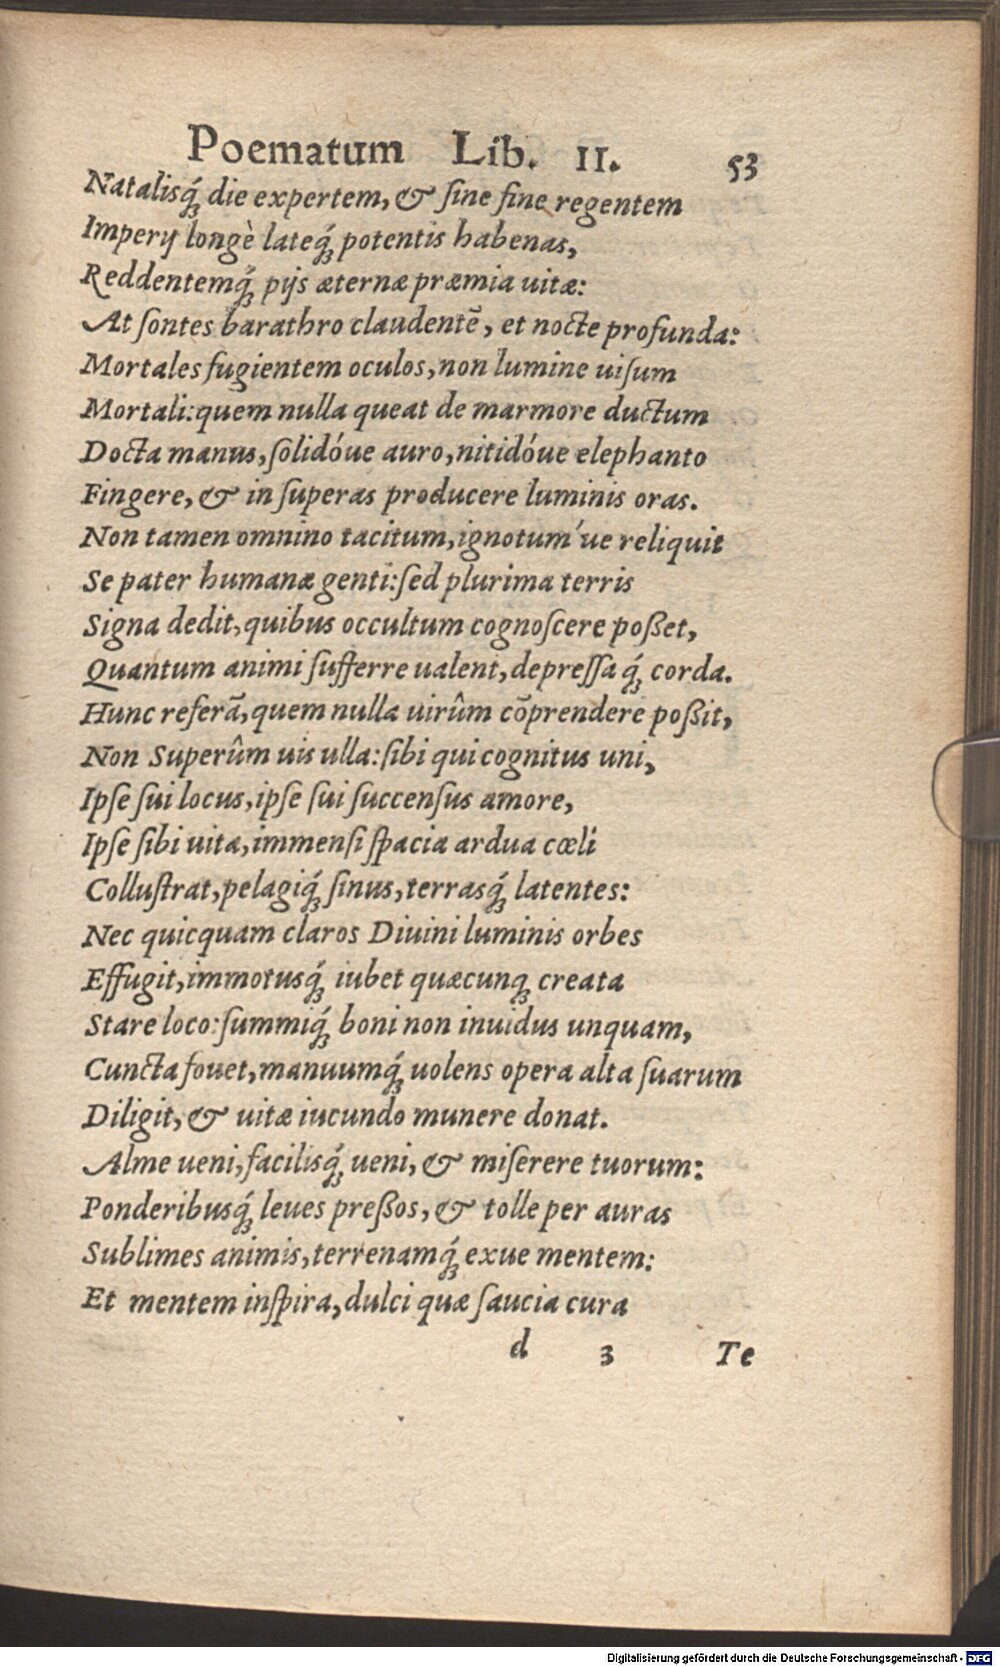 Poematum Lib. II. 53
Natalisq́ꝫ die expertem, & ſine fine regentem
Imperij longè lateq́ꝫ potentis habenas,
Reddentemq́ꝫ pijs æternæ præmia uitæ:
At ſontes barathro claudentē, et nocte profunda:
Mortales fugientem oculos, non lumine uiſum
Mortali: quem nulla queat de marmore ductum
Docta manus, ſolidóue auro, nitidóue elephanto
Fingere, & in ſuperas producere luminis oras.
Non tamen omnino tacitum, ignotum´ue reliquit
Se pater humanæ genti: ſed plurima terris
Signa dedit, quibus occultum cognoſcere poßet,
Quantum animi ſufferre ualent, depreſſaq́ꝫ corda.
Hunc referā, quem nulla uirûm cōprendere poßit,
Non Superûm uis ulla: ſibi qui cognitus uni,
Ipſe ſui locus, ipſe ſui ſuccenſus amore,
Ipſe ſibi uita, immenſi ſpacia ardua cœli
Colluſtrat, pelagiq́ꝫ ſinus, terrasq́ꝫ latentes:
Nec quicquam claros Diuini luminis orbes
Effugit, immotusq́ꝫ iubet quæcunqꝫ creata
Stare loco: ſummiq́ꝫ boni non inuidus unquam,
Cuncta fouet, manuumq́ꝫ uolens opera alta ſuarum
Diligit, & uitæ iucundo munere donat.
Alme ueni, facilisq́ꝫ ueni, & miſerere tuorum:
Ponderibusq́ꝫ leues preßos, & tolle per auras
Sublimes animis, terrenamq́ꝫ exue mentem:
Et mentem inſpira, dulci quæ ſaucia cura
d 3 Te
Digitalisierung gefördert durch die Deutsche Forschungsgemeinschaft - DFG